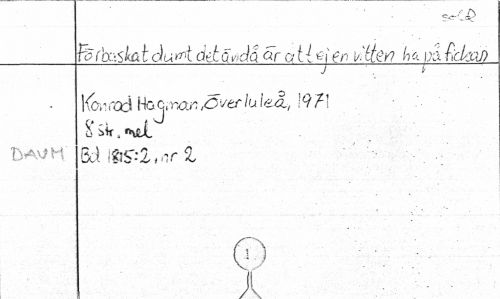 sold
Förbaskat dumt det ändå är att ej en vitten ha på fickan
Konrad Hagman, Överluleå, 1971
8 str. mel
DAUM Bd 1815:2, nr 2
1